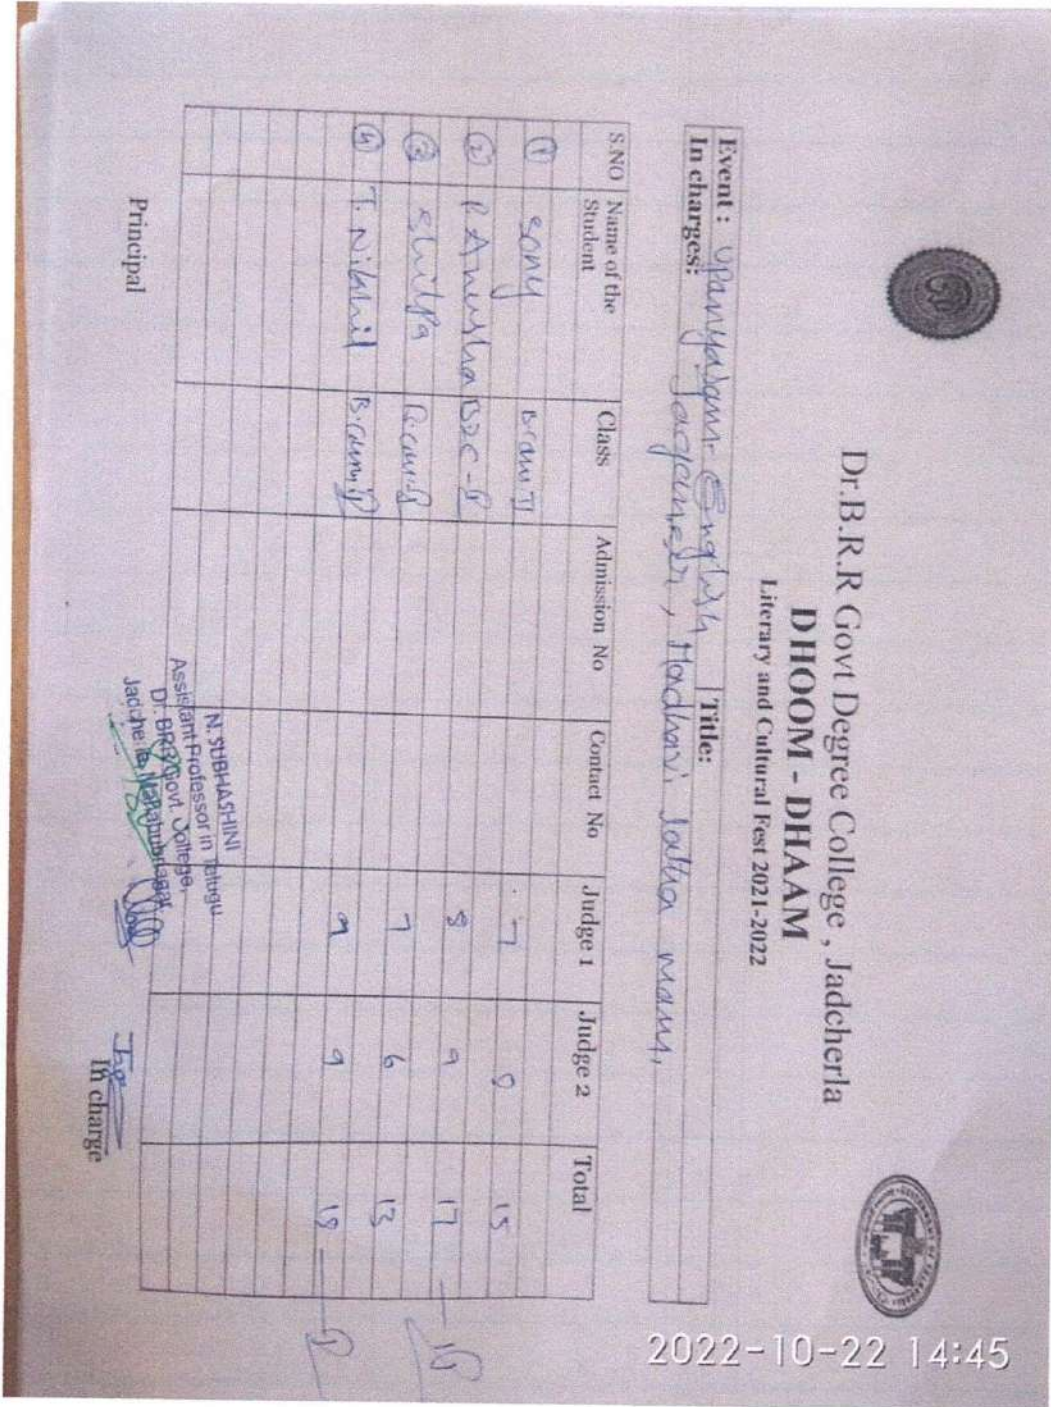 Dr.B.R.R Govt Degree College , Jadcherla
DHOOM - DHAAM
Literary and Cultural Fest 2021-2022
Event : Upanyasam - English Title:
In charges: Jagadeeswer, Madhavi latha mam,
S.NO Name of the Student Class Admission No Contact No Judge 1 Judge 2 Total
1 Sony B.com II 7 8 15
2 P. Anusha BZC - 8 9 17
3 Shilpa B.com 7 6 13
4 T. Nikhil B.com 9 9 18
N. SUBHASHINI
Assistant Professor in Telugu
Dr. BRR Govt. College,
Jadcherla, Mahabubnagar
Principal In charge
2022-10-22 14:45